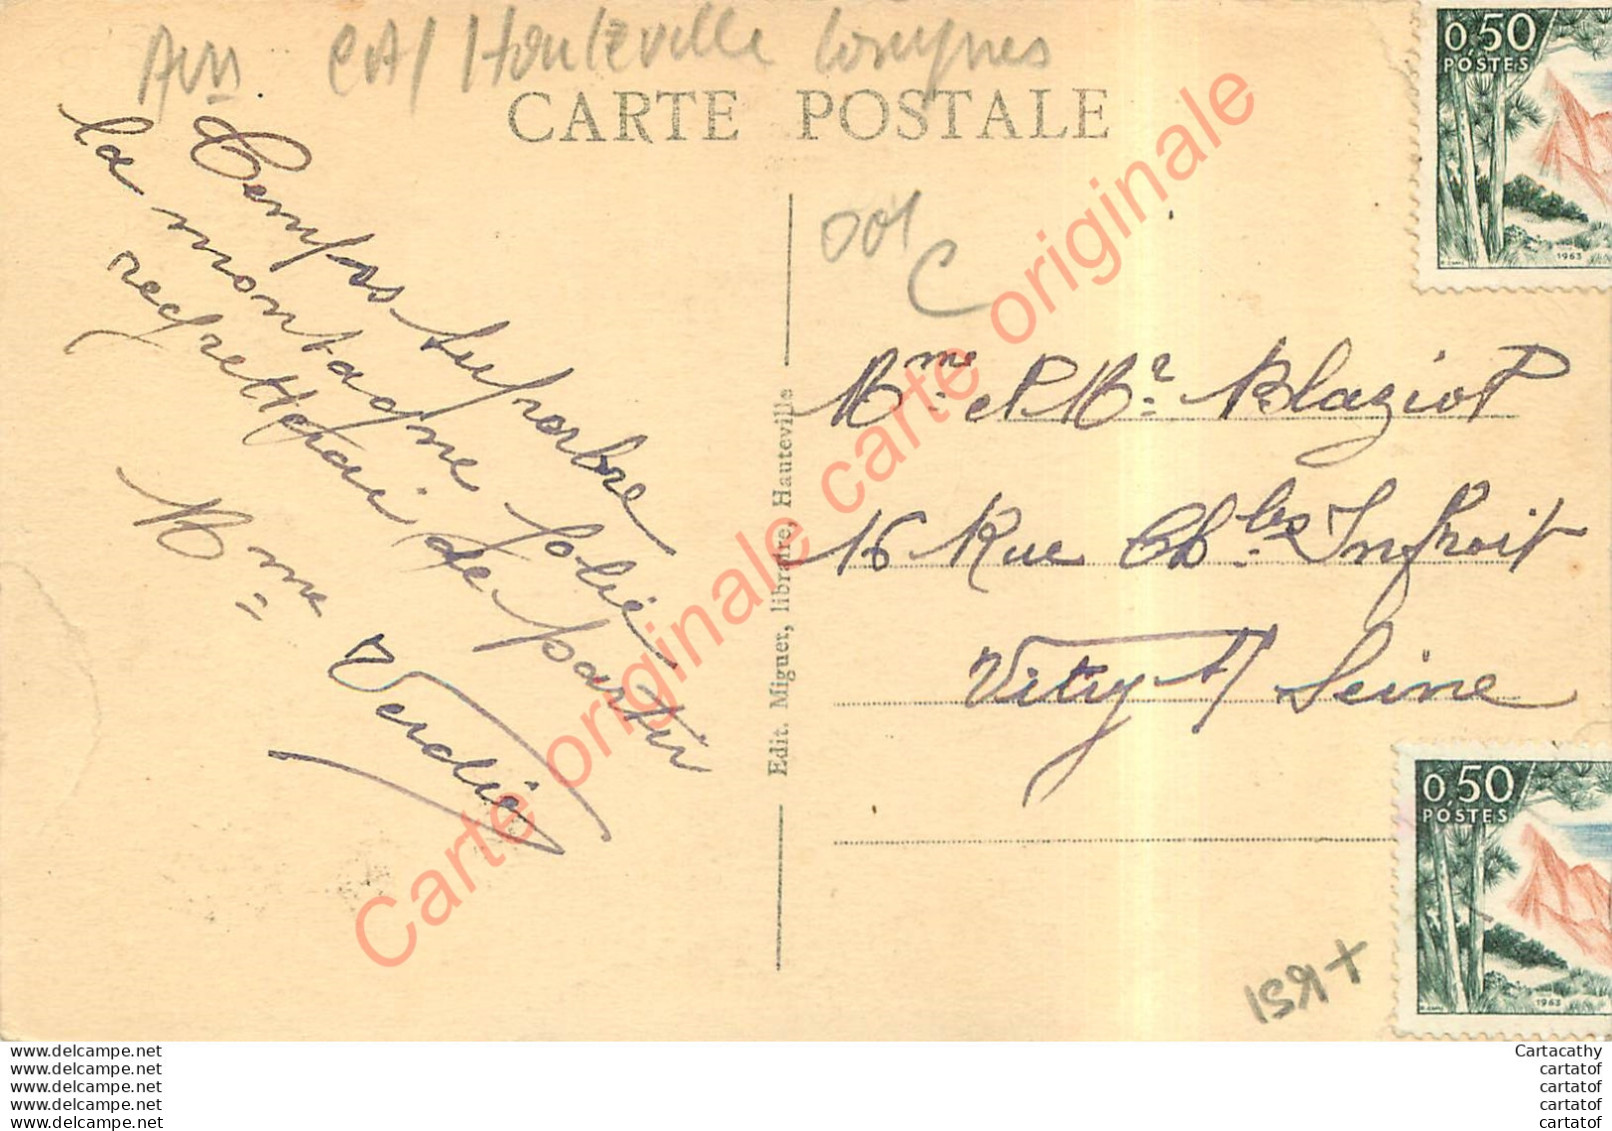 Ain CA/ Hauteville Lompnes
CARTE POSTALE
Temps superbe
la montagne jolie
regretterai de partir
Mme Verdier
Edit. Miguet, libraire, Hauteville
001
C
0,50
POSTES
1963
Mme et Mr Blaziot
16 Rue Ch-les Infroit
Vitry s/ Seine
0,50
POSTES
1963
Carte originale carte originale carte originale
www.delcampe.net
www.delcampe.net
www.delcampe.net
www.delcampe.net
www.delcampe.net
Cartacathy
cartatof
cartatof
cartatof
cartatof